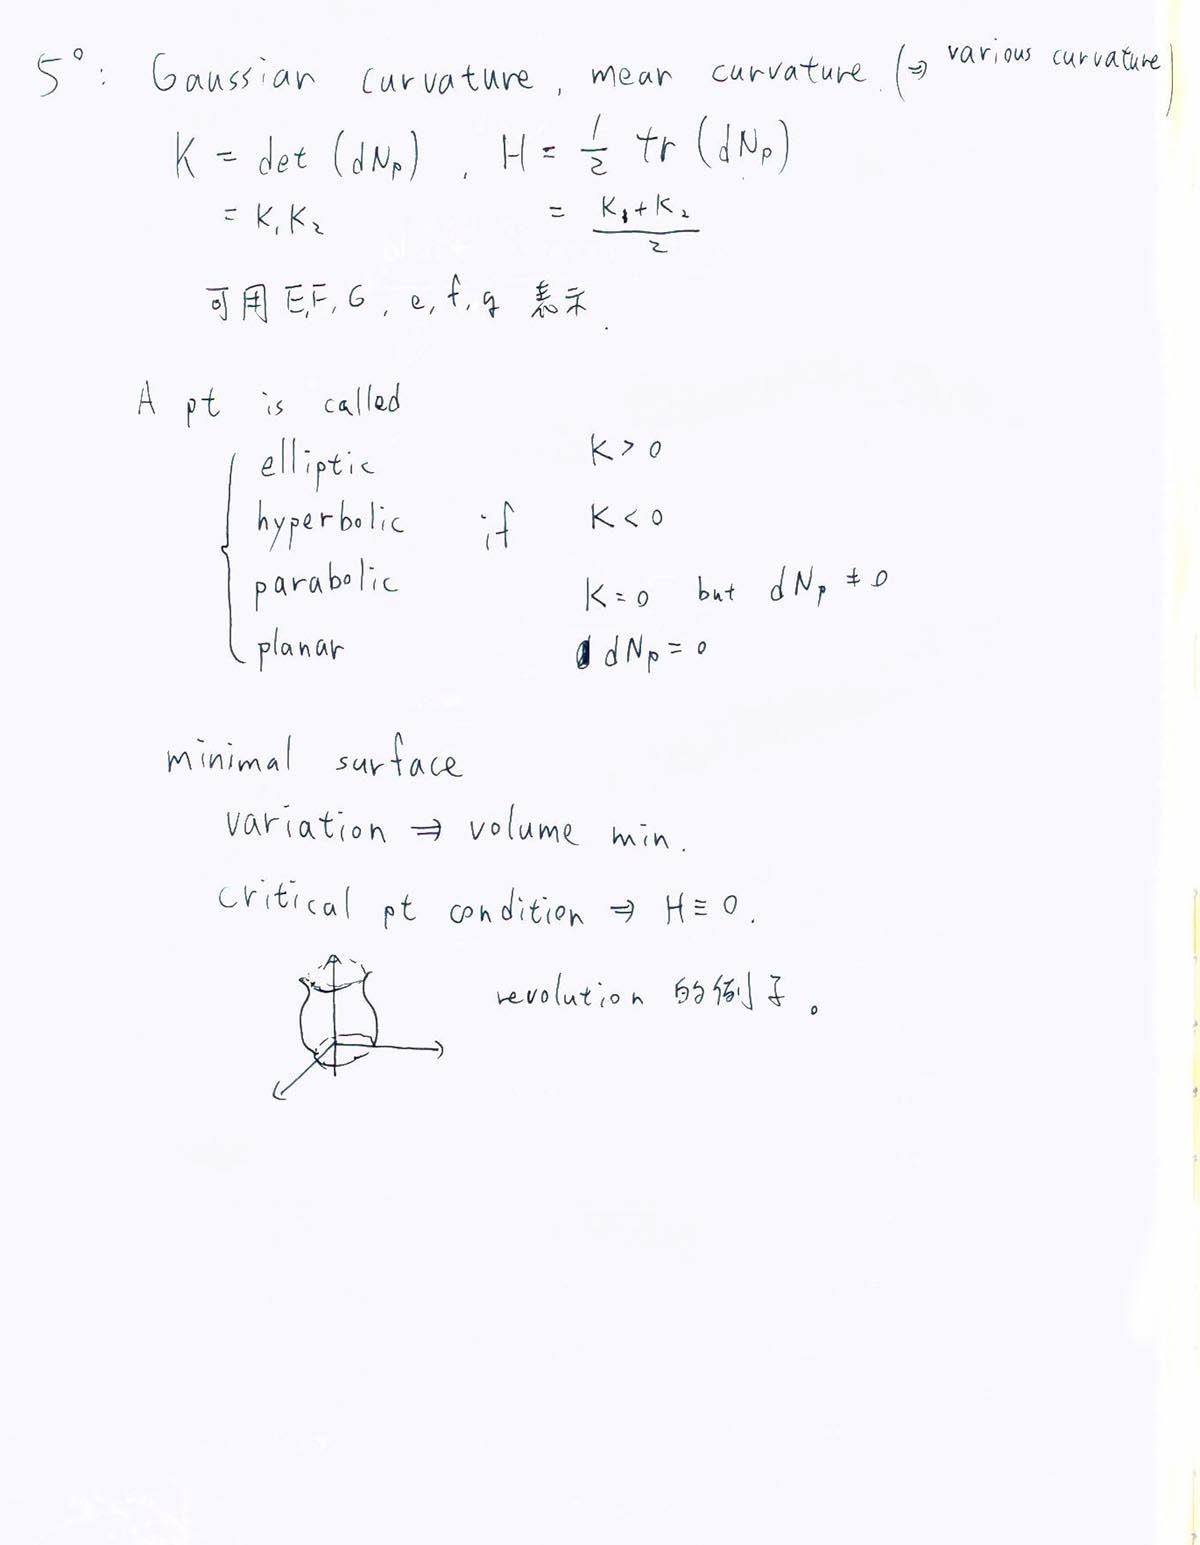 5°: Gaussian curvature, mean curvature. (⇒ various curvature)
K = det (dNp), H = 1/2 tr (dNp)
= K₁K₂ = (K₁+K₂)/2
可用 E,F,G, e,f,g 表示.
A pt is called
elliptic K>0
hyperbolic if K<0
parabolic K=0 but dNp ≠ 0
planar dNp = 0
minimal surface
variation ⇒ volume min.
critical pt condition ⇒ H≡0.
revolution 的例子。